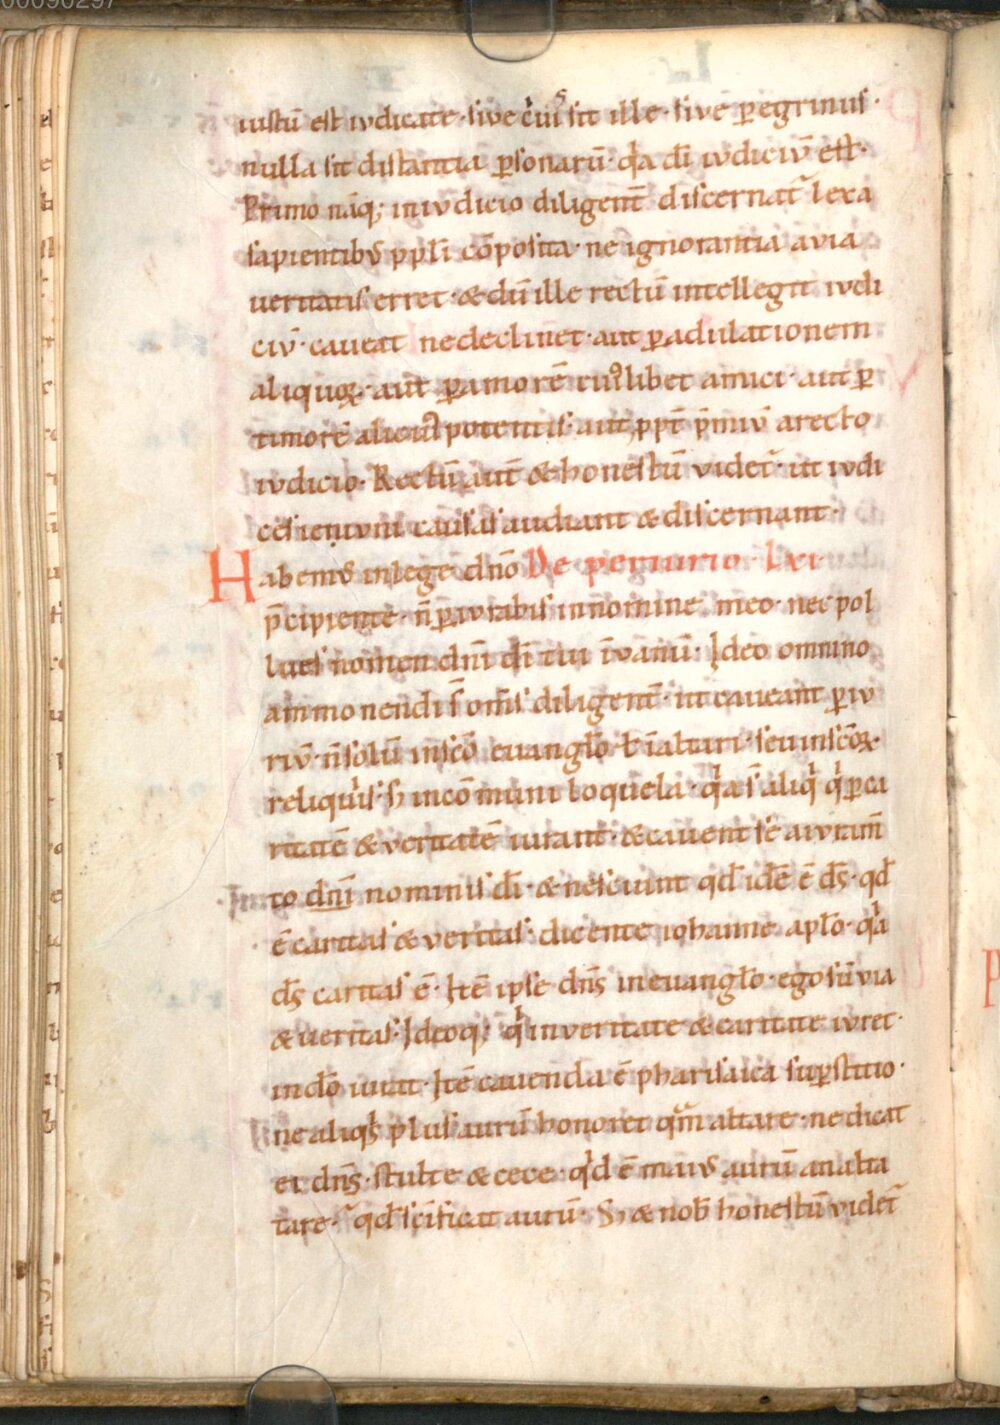 iustū est iudicate · sive cīvis sit ille · sive p̄egrinus ·
nulla sit distantia p̱sonarū · q̇a dī iudiciū est ·
Primo nāq; in iudicio diligent̄ discernat̄ lex a
sapientibus ppłi cōposita · ne ignorantia a via
veritatis erret · & dū ille rectū intellegit iudi
ciū · caveat ne declinet · aut p̱ adulationem
aliquoꝝ · aut p̱ amorē cuiuslibet amici · aut p̱
timorē alicuius potentis · aut ppt̄ p̄miū a recto
iudicio · Rectū autē & honestū videt̄ · ut iudi
ces ieiuni causas audiant & discernant ·
Habemus in lege dn̄o De periurio · Lxi ·
p̄cipiente · n̄ p̱iurabis in nomine meo · nec pol
lues nomen dn̄i dī tui ī vanū · Ideo omnino
ammonendi s̄ om̄s diligent̄ · ut caveant p̱iu
riū · n̄ solū in sc̄o euangłio ł ī altari · seu in sc̄oꝝ ·
reliquiis · s; in cōmuni loquela · q̇a s̄ aliq̇ q̇ p̱ ca
ritatē & veritatē iurant · & cavent se a iuram̄
to dn̄i nominis dī · & nesciunt qđ idē ē ds̄ · qđ
ē caritas & veritas · dicente iohanne apło · q̇a
ds̄ caritas ē · Itē ipse dn̄s in euangłio · ego sū via
& veritas · Ideoq; q̇ in veritate & caritate iuret ·
in dō iurat · Itē cavenda ē pharisaica sup̱stitio ·
ne aliqṡ plus aurū honoret qm̄ altare · ne dicat
ei dn̄s · stulte & cece · qđ ē maius aurū an alta
tare · qđ sc̄ificat aurū · S; & nob̄ honestū videt̄